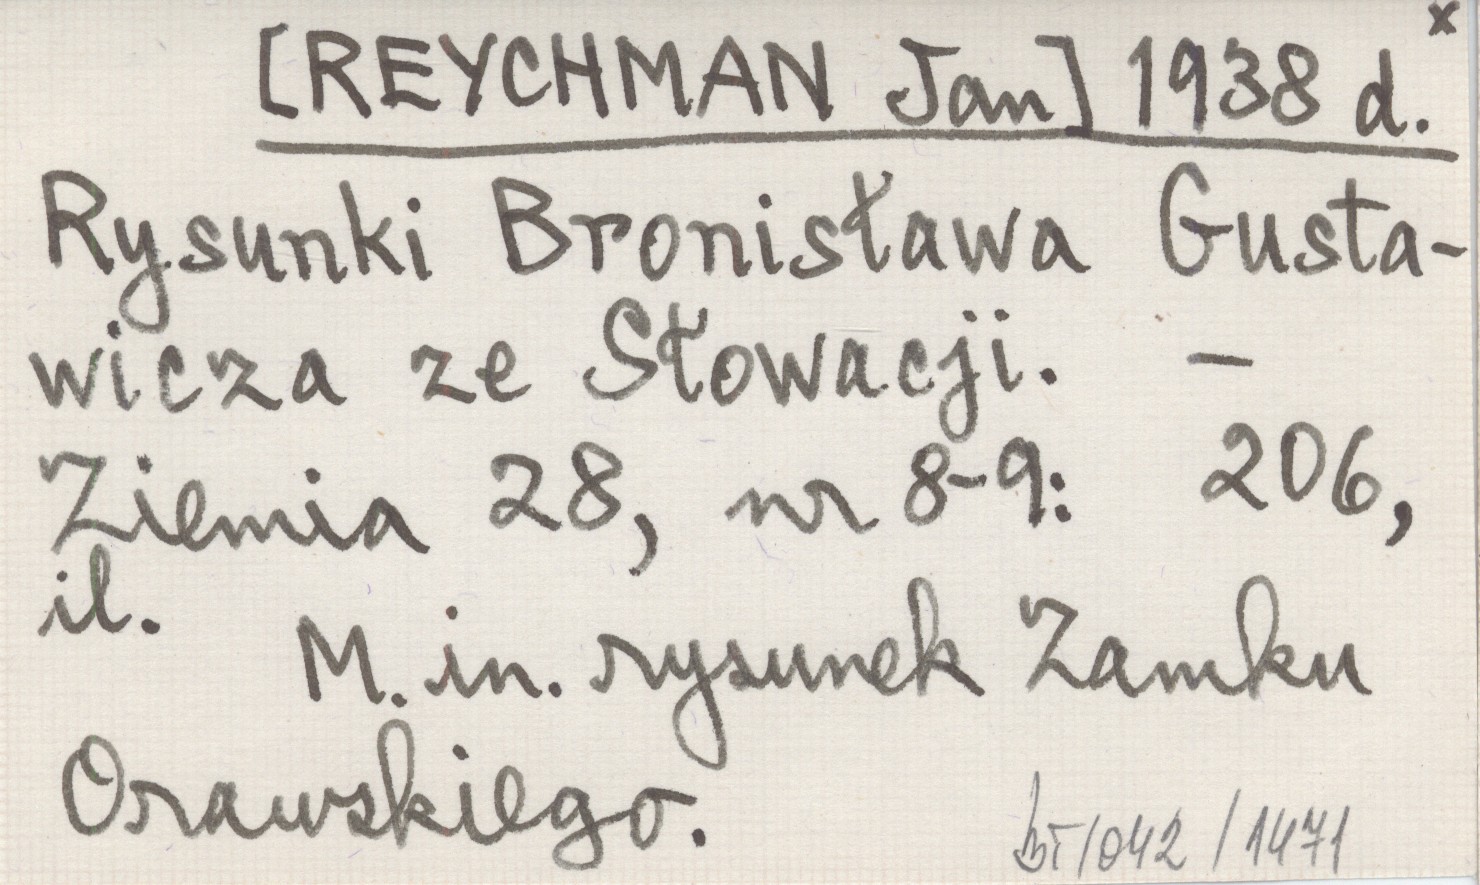 x
[REYCHMAN Jan] 1938 d.
Rysunki Bronisława Gusta-
wicza ze Słowacji. –
Ziemia 28, nr 8-9: 206,
il.
M. in. rysunek Zamku
Orawskiego.
/042/1471